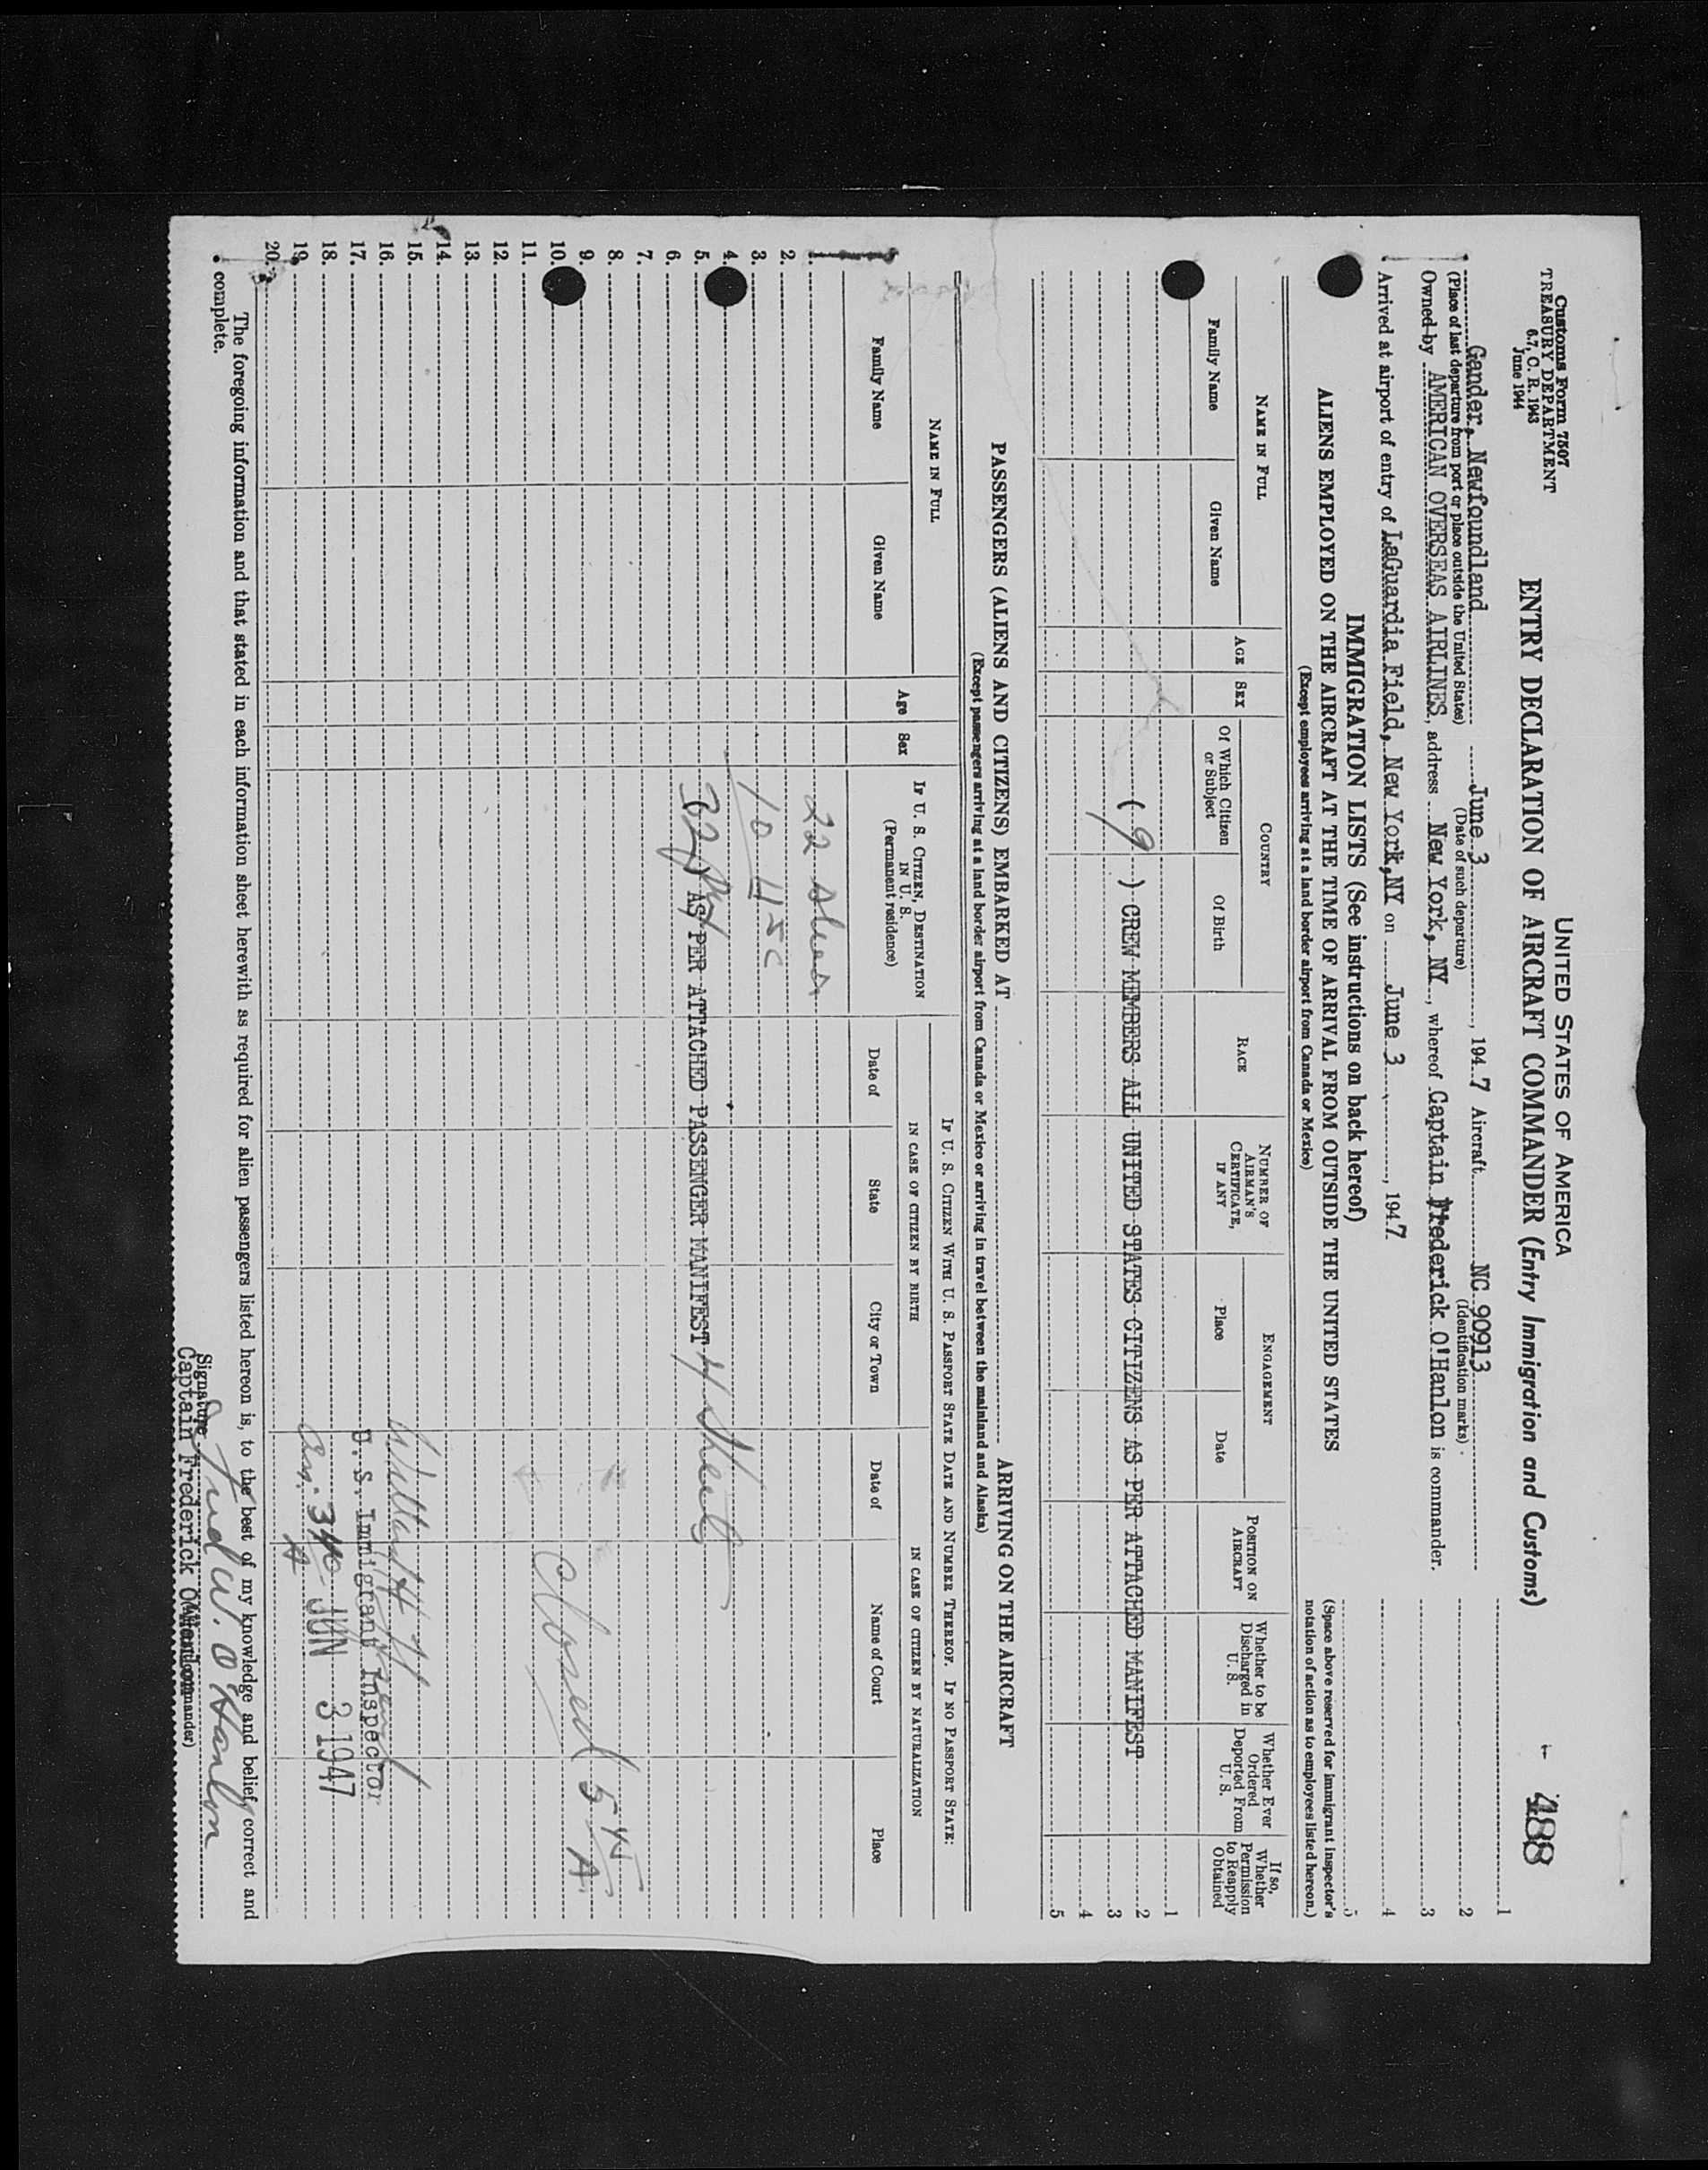 Customs Form 7507
TREASURY DEPARTMENT
6.7, C. R. 1943
June 1944
UNITED STATES OF AMERICA
ENTRY DECLARATION OF AIRCRAFT COMMANDER (Entry Immigration and Customs)
488
Gander, Newfoundland June 3, 1947 Aircraft NC 90913
(Place of last departure from port or place outside the United States) (Date of such departure) (Identification marks)
Owned by AMERICAN OVERSEAS AIRLINES, address New York, NY, whereof Captain Frederick O'Hanlon is commander.
Arrived at airport of entry of LaGuardia Field, New York, NY on June 3, 1947
1
2
3
4
5
IMMIGRATION LISTS (See instructions on back hereof)
ALIENS EMPLOYED ON THE AIRCRAFT AT THE TIME OF ARRIVAL FROM OUTSIDE THE UNITED STATES
(Except employees arriving at a land border airport from Canada or Mexico)
(Space above reserved for immigrant inspector's notation of action as to employees listed hereon.)
NAME IN FULL
Family Name
Given Name
AGE
SEX
COUNTRY
Of Which Citizen or Subject
Of Birth
RACE
NUMBER OF AIRMAN'S CERTIFICATE, IF ANY
ENGAGEMENT
Place
Date
POSITION ON AIRCRAFT
Whether to be Discharged in U. S.
Whether Ever Ordered Deported From U. S.
If so, Whether Permission to Reapply Obtained
1
( 9 ) CREW MEMBERS ALL UNITED STATES CITIZENS AS PER ATTACHED MANIFEST 2
3
4
5
PASSENGERS (ALIENS AND CITIZENS) EMBARKED AT ARRIVING ON THE AIRCRAFT
(Except passengers arriving at a land border airport from Canada or Mexico or arriving in travel between the mainland and Alaska)
NAME IN FULL
Family Name
Given Name
Age
Sex
IF U. S. CITIZEN, DESTINATION IN U. S.
(Permanent residence)
IF U. S. CITIZEN WITH U. S. PASSPORT STATE DATE AND NUMBER THEREOF. IF NO PASSPORT STATE:
IN CASE OF CITIZEN BY BIRTH
Date of
State
City or Town
IN CASE OF CITIZEN BY NATURALIZATION
Date of
Name of Court
Place
1. 22 aliens
2.
3. 10 USC
4.
5. (32) AS PER ATTACHED PASSENGER MANIFEST 4 Sheets
6.
7.
8.
9.
10. Closed
11.
12.
13.
14.
15.
16.
17. U. S. Immigrant Inspector
18. JUN 3 1947
19.
20.
The foregoing information and that stated in each information sheet herewith as required for alien passengers listed hereon is, to the best of my knowledge and belief, correct and
complete.
Signature Fred W. O'Hanlon
Captain Frederick O'Hanlon